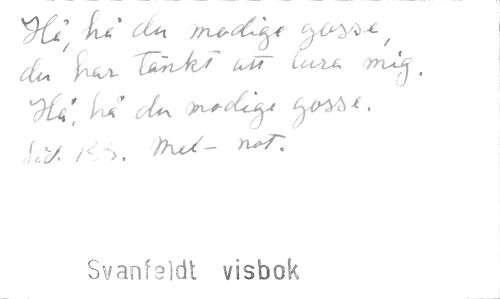 Hå, hå du modige gosse,
du har tänkt att lura mig.
Hå, hå du modige gosse.
Sid. Mel- not.
Svanfeldt visbok